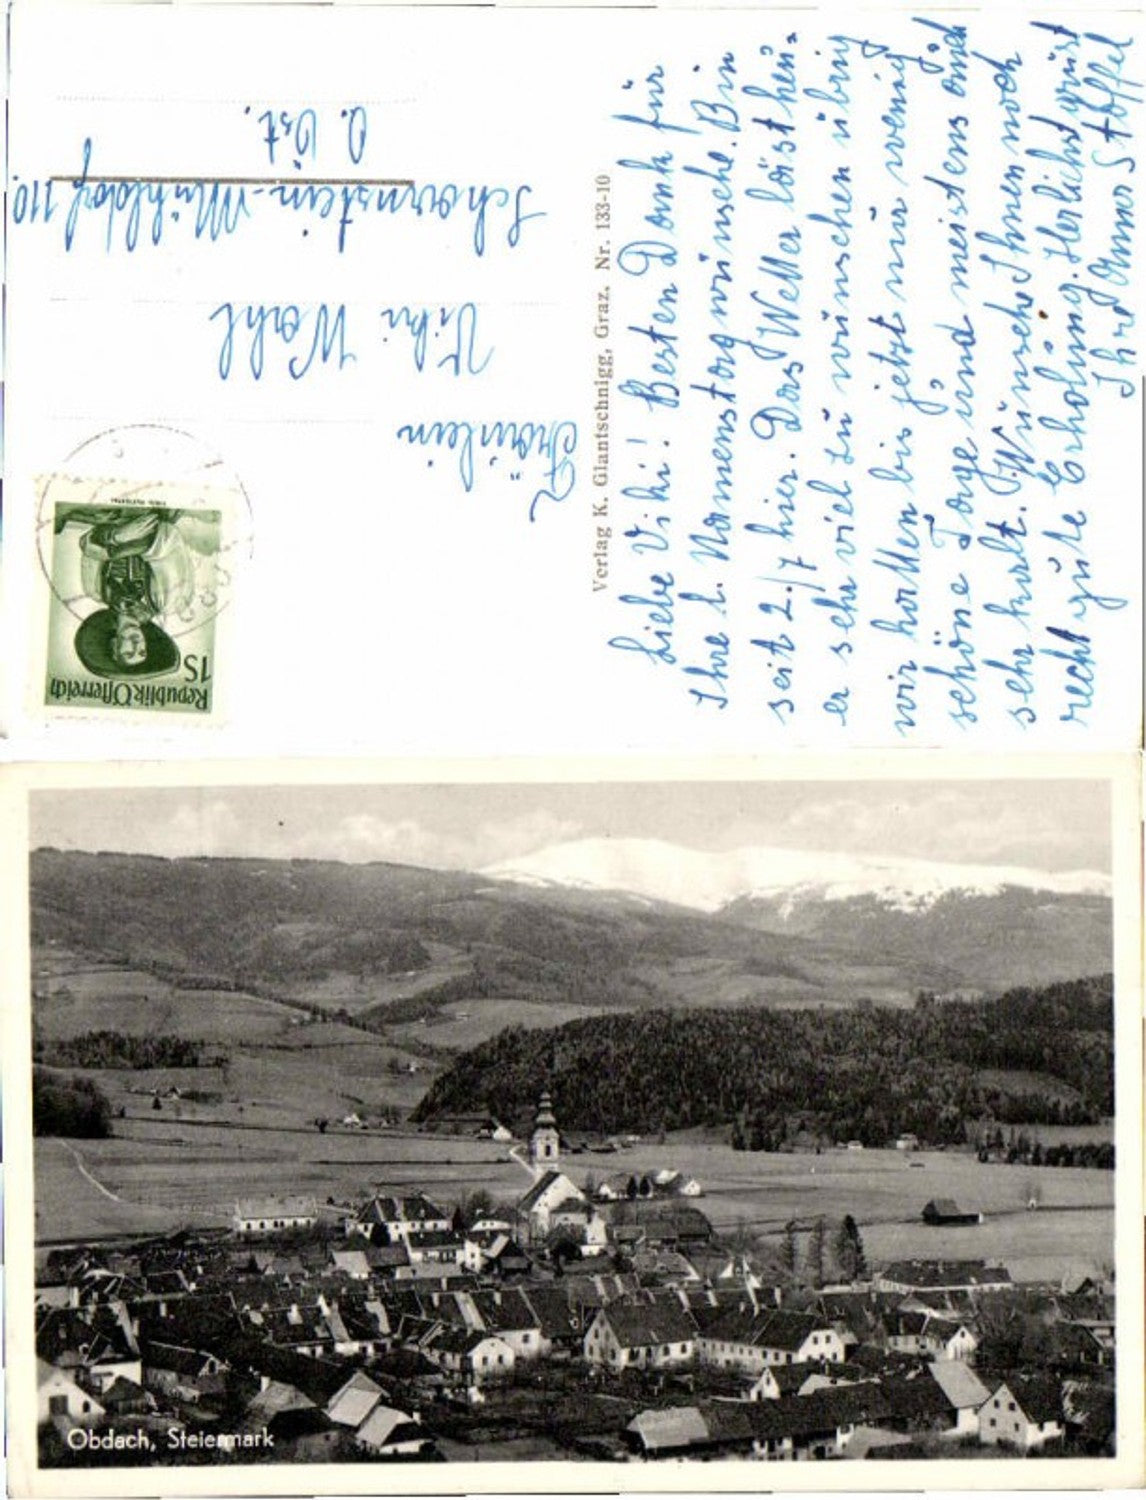 Republik Österreich
1S
Fräulein
Viki Wahl
Scharnstein-Mühldorf 110.
O. Öst.
Verlag K. Glantschnigg, Graz. Nr. 133-10
Liebe Viki! Besten Dank für
Ihre l. Namenstagwünsche. Bin
seit 2./7 hier. Das Wetter läist hei-
er sehr viel zu wünschen übrig
wir hatten bis jetzt nur wenig
schöne Tage und meistens
sehr kalt. Wünsche Ihnen noch
recht gute Erholung. Herlichst grüst
Ihre Anna Stoffel
Obdach, Steiermark